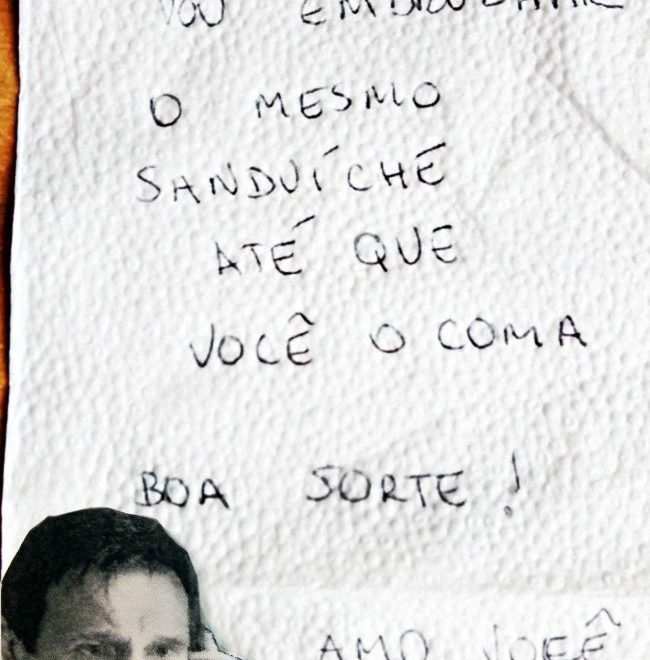 VOU EMBRULHAR
O MESMO
SANDUÍCHÉ
ATÉ QUE
VOCÊ O COMA
BOA SORTE!
AMO VOCÊ